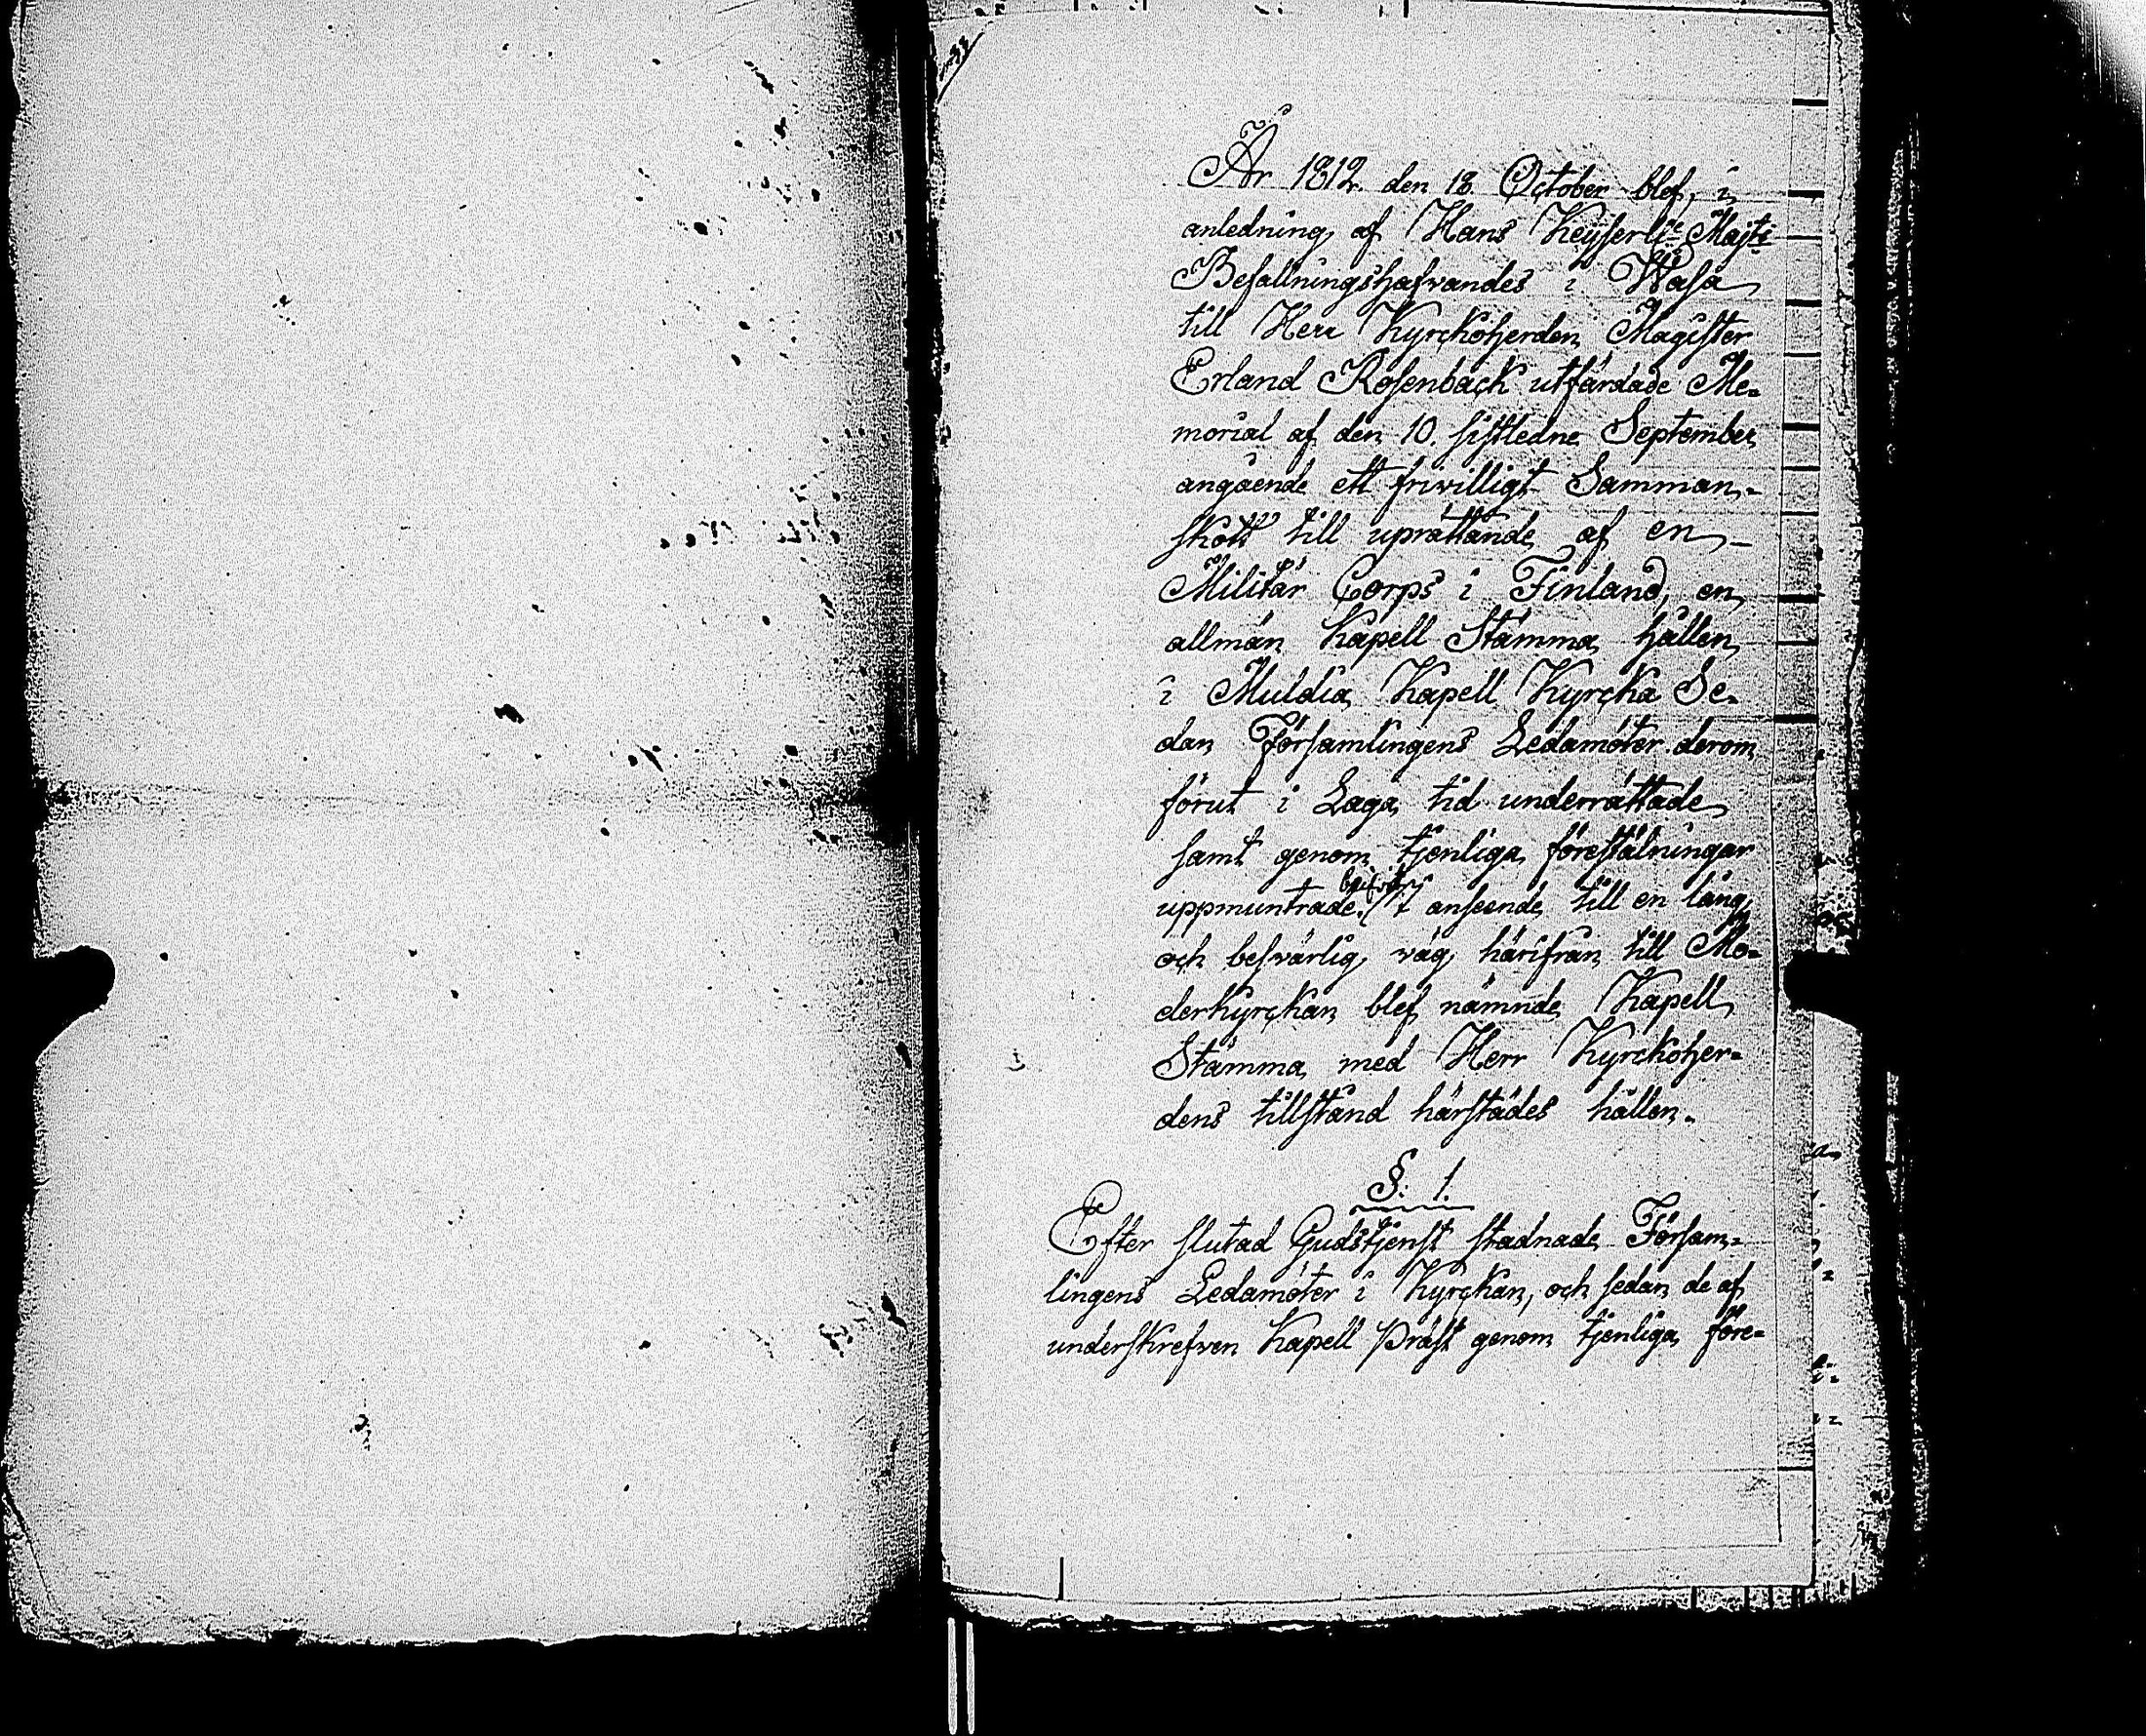 År 1812. den 18. October blef, i
anledning af Hans Keyserl:e Majts
Befallningshafvandes i Wasa
till Herr Kyrckoherden Magister
Erland Rosenback utfärdade Me=
morial af den 10. sistledne September
angående ett frivilligt Samman=
skott till uprättande af en
Militär Corps i Finland, en
allmän Kapell Stämma hållen
i Muldia Kapell Kyrcka Se=
dan Församlingens Ledamöter derom
förut i Laga tid underrättade
samt genom tjenliga föreställningar
uppmuntrade. I anseende till en lång
och besvärlig väg härifrån till Mo=
derkyrckan blef nämnde Kapell
Stämma med Herr Kyrckoher=
dens tillstånd härstädes hållen.
§. 1.
Efter slutad Gudstjenst stadnade Försam=
lingens Ledamöter i Kyrckan, och sedan de af
underskrefven Kapell Präst genom tjenliga före=